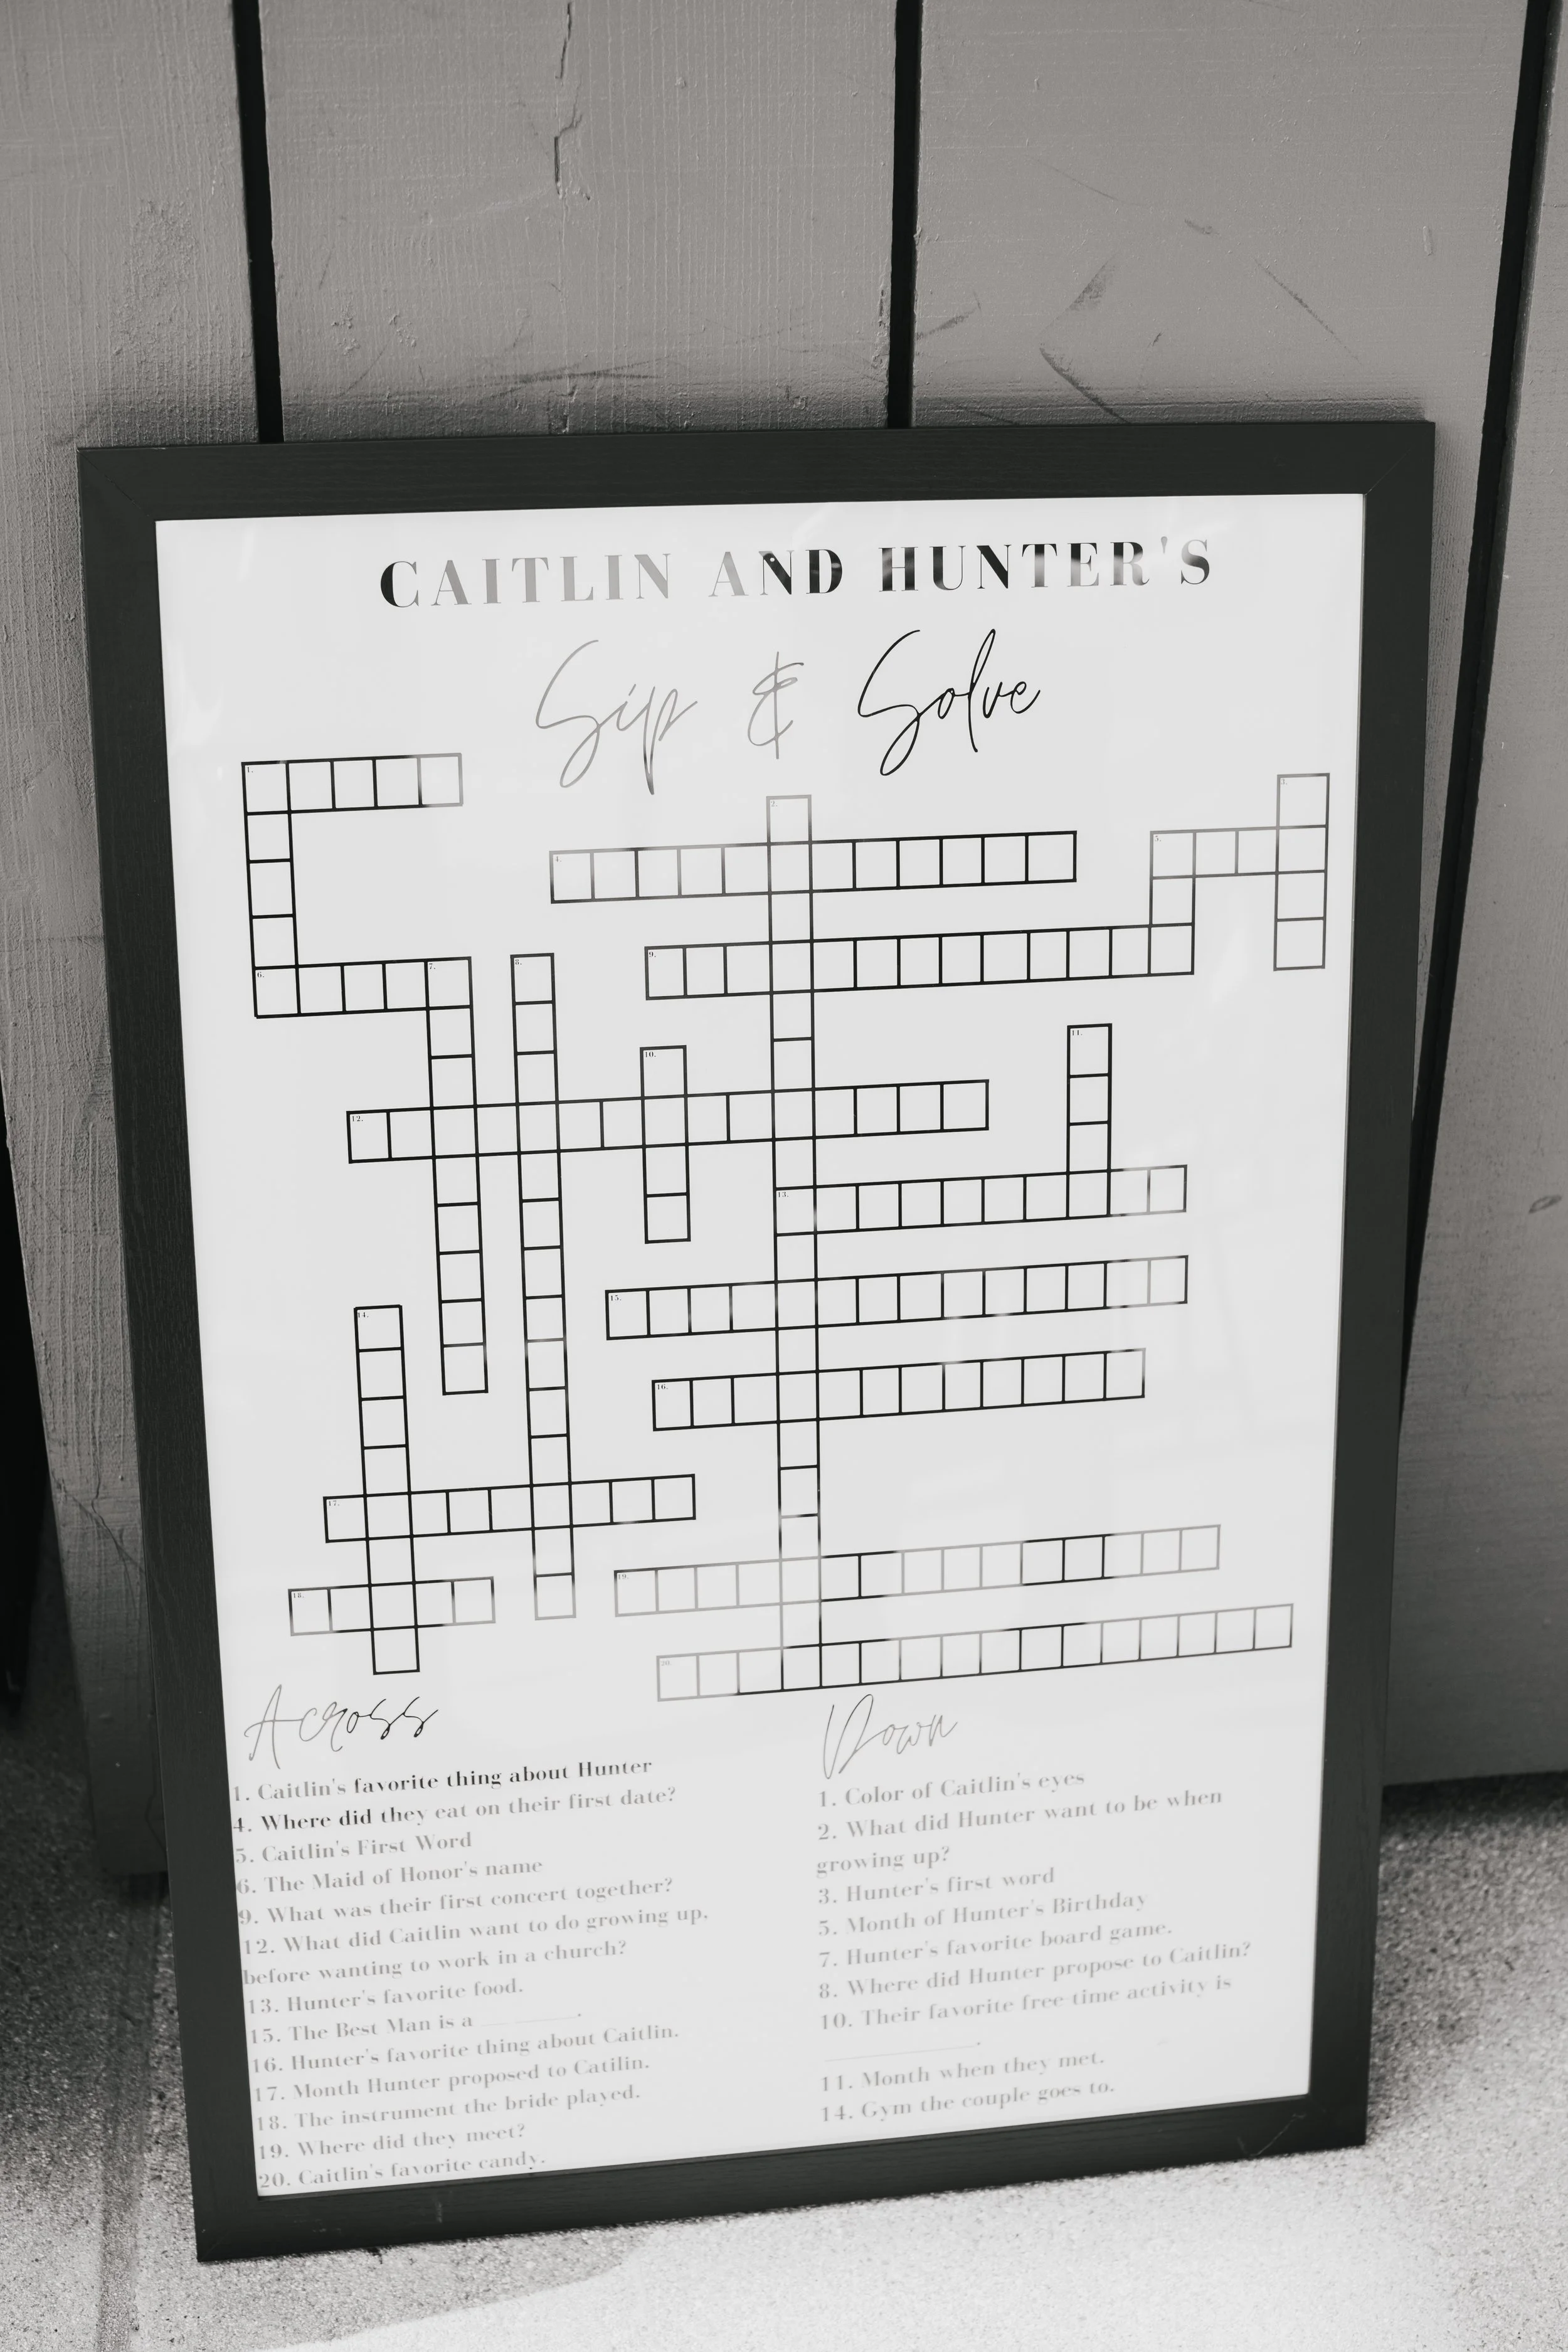 CAITLIN AND HUNTER'S
Sip & Solve
1.
2.
3.
4.
5.
6.
7.
8.
9.
10.
11.
12.
13.
14.
15.
16.
17.
18.
19.
20.
Across
1. Caitlin's favorite thing about Hunter
4. Where did they eat on their first date?
5. Caitlin's First Word
6. The Maid of Honor's name
9. What was their first concert together?
12. What did Caitlin want to do growing up,
before wanting to work in a church?
13. Hunter's favorite food.
15. The Best Man is a ________.
16. Hunter's favorite thing about Caitlin.
17. Month Hunter proposed to Catilin.
18. The instrument the bride played.
19. Where did they meet?
20. Caitlin's favorite candy.
Down
1. Color of Caitlin's eyes
2. What did Hunter want to be when
growing up?
3. Hunter's first word
5. Month of Hunter's Birthday
7. Hunter's favorite board game.
8. Where did Hunter propose to Caitlin?
10. Their favorite free-time activity is
____________.
11. Month when they met.
14. Gym the couple goes to.